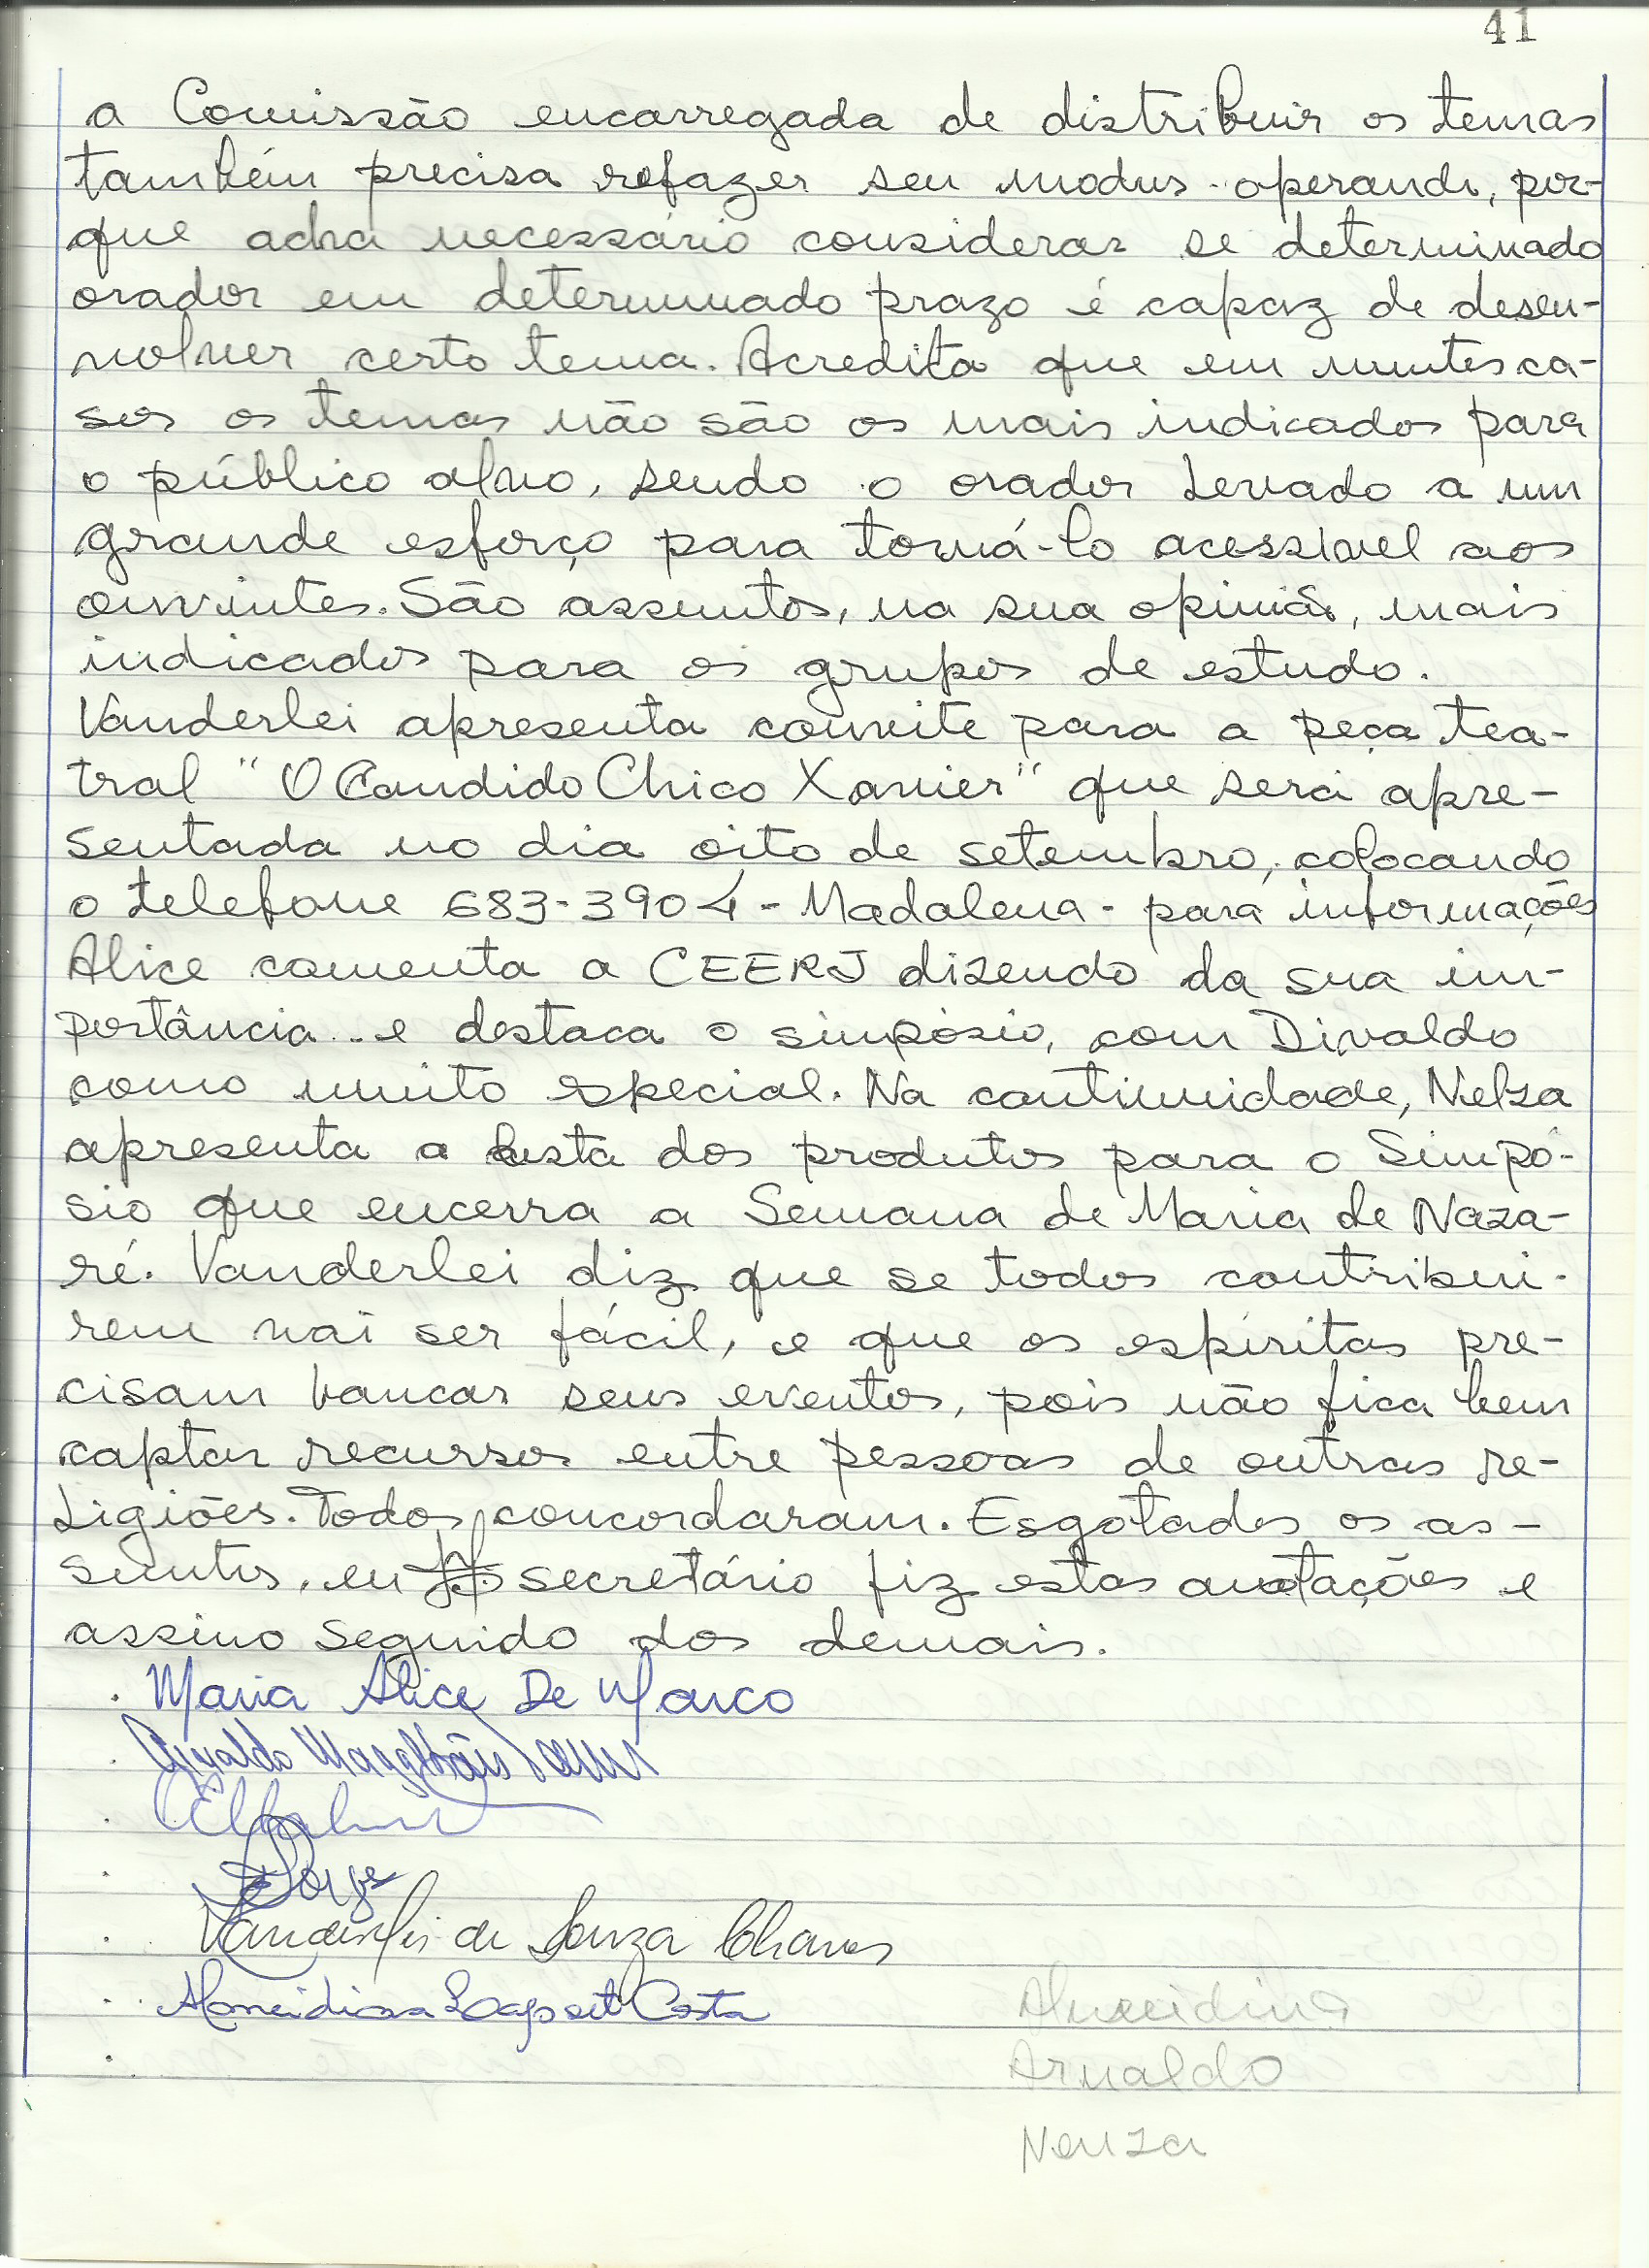 41
a Comissão encarregada de distribuir os temas
também precisa refazer seu modus operandi, por-
que acha necessário considerar se determinado
orador em determinado prazo é capaz de desen-
volver certo tema. Acredita que em muitos ca-
sos os temas não são os mais indicados para
o público alvo, sendo o orador levado a um
grande esforço para torná-lo acessível aos
ouvintes. São assuntos, na sua opinião, mais
indicados para os grupos de estudo.
Vanderlei apresenta convite para a peça tea-
tral "O Candido Chico Xavier" que será apre-
sentada no dia oito de setembro, colocando
o telefone 683-3904 - Madalena - para informações
Alice comenta a CEERJ dizendo da sua im-
portância e destaca o simpósio, com Divaldo
como muito especial. Na continuidade, Nelza
apresenta a lista dos produtos para o Simpó-
sio que encerra a Semana de Maria de Naza-
ré. Vanderlei diz que se todos contribui-
rem vai ser fácil, e que os espíritas pre-
cisam bancar seus eventos, pois não fica bem
captar recursos entre pessoas de outras re-
ligiões. Todos concordaram. Esgotados os as-
suntos, eu secretário fiz estas anotações e
assino seguido dos demais.
Maria Alice De Marco
Magalhães
Borges
Vanderlei de Souza Chaves
Almeidina Costa
Almeidina
Arnaldo
Neuza